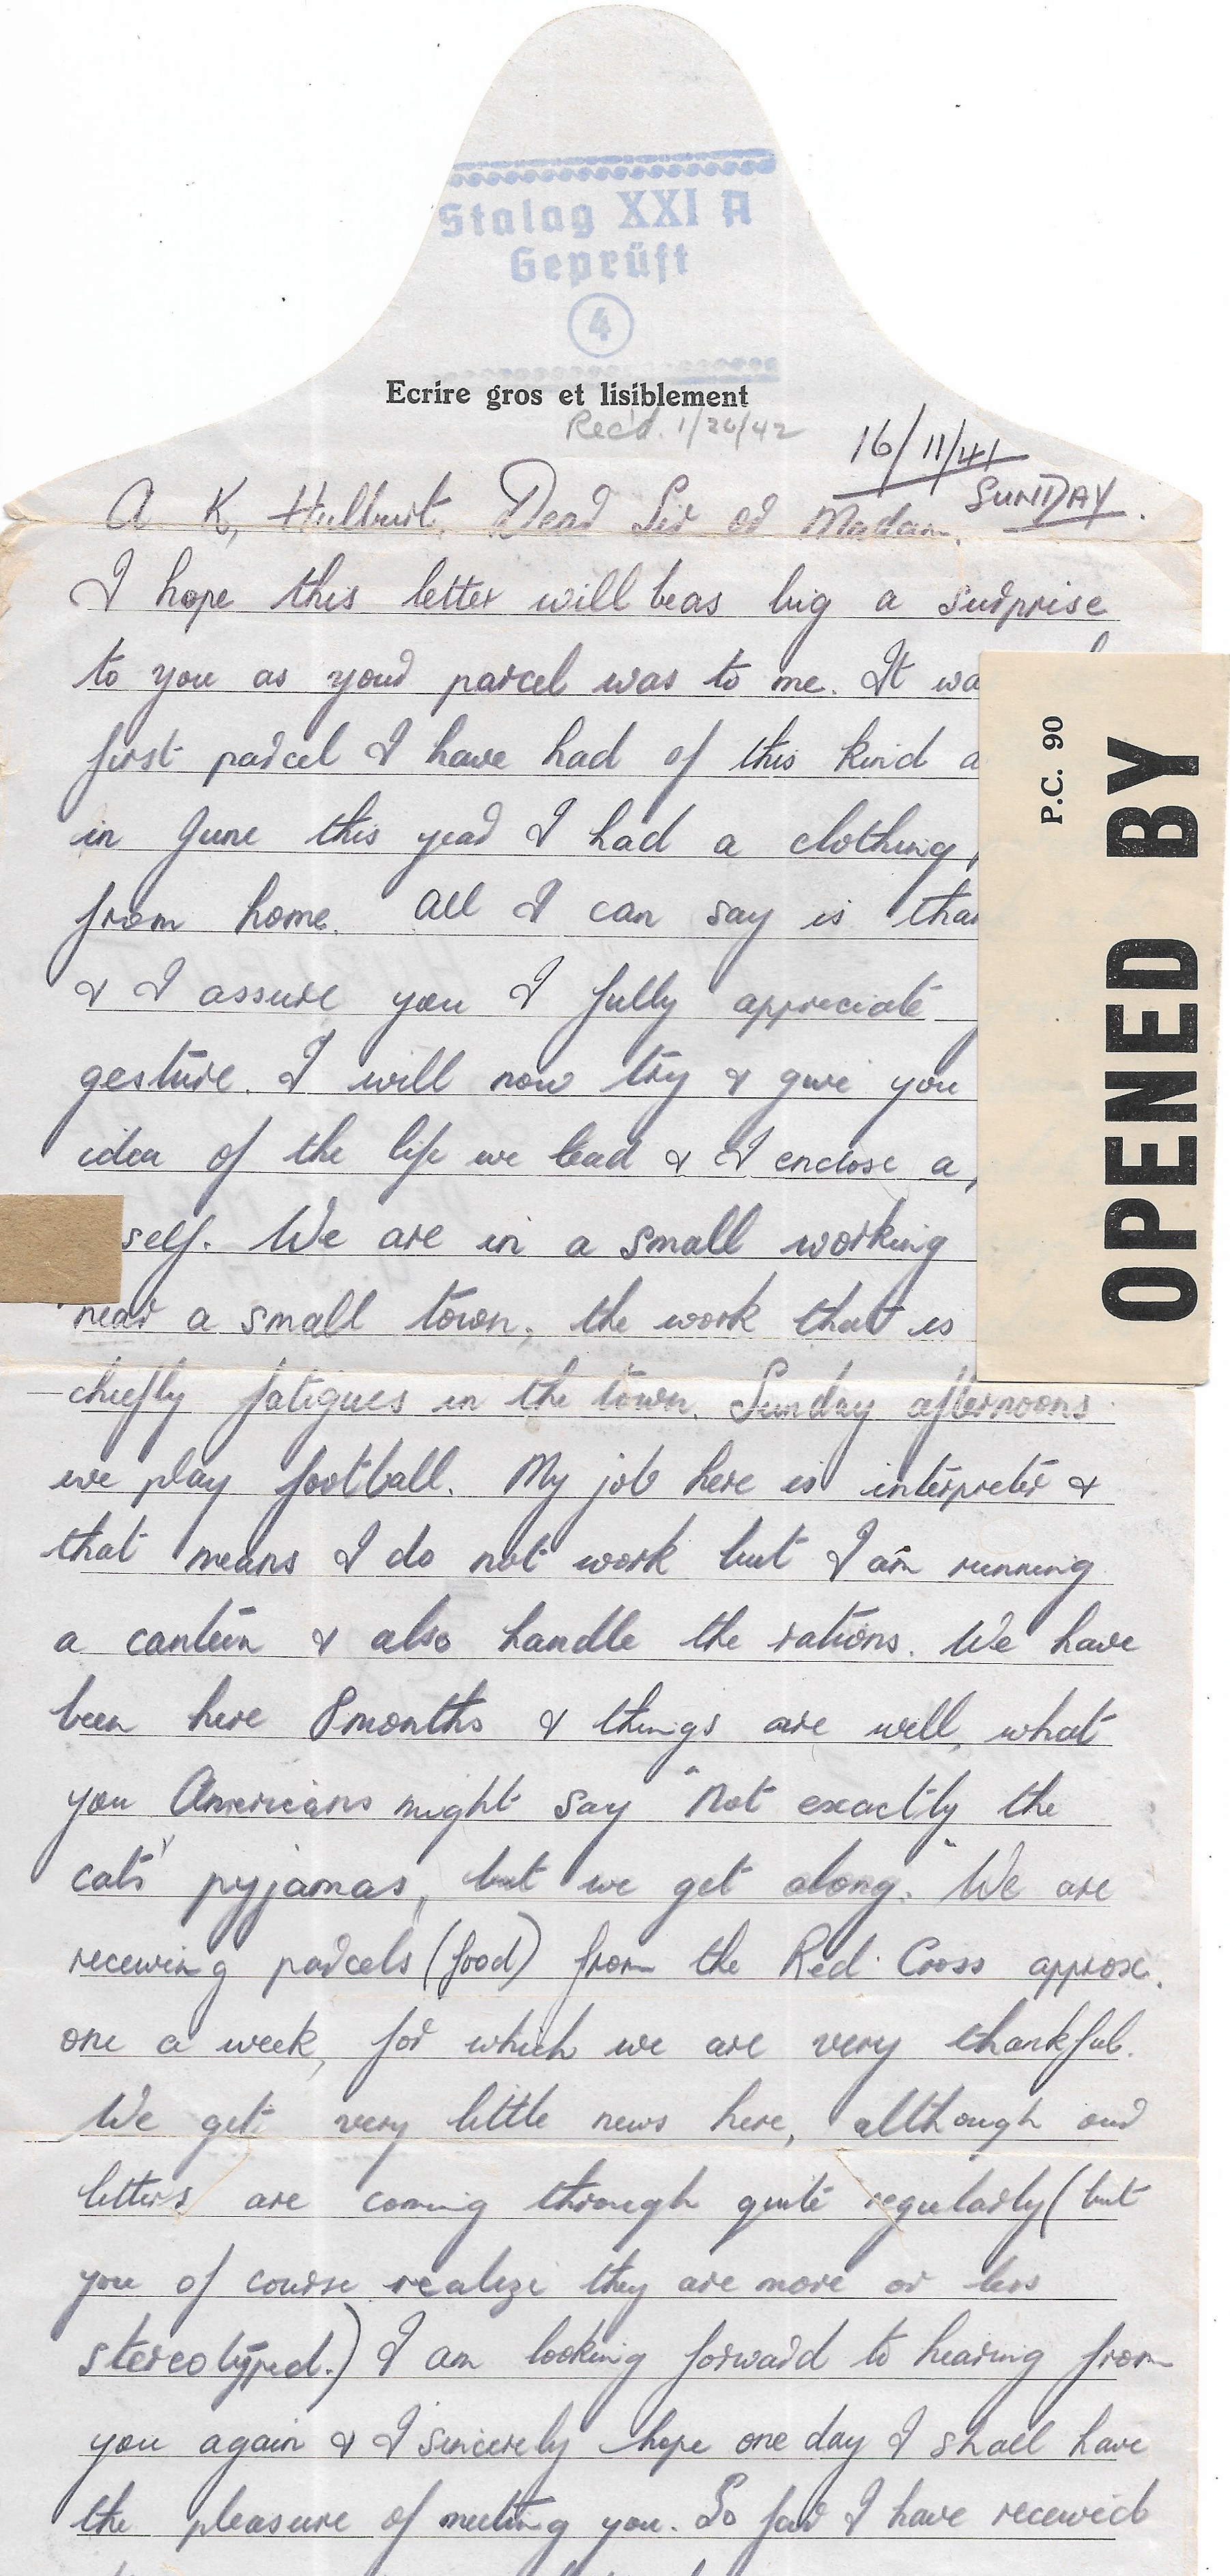 Stalag XXI A
Geprüft
4
Ecrire gros et lisiblement
Rec'd. 1/26/42
16/11/41
SUNDAY.
A K, Hulburt. Dear Sir or Madam.
I hope this letter will be as big a surprise
to you as your parcel was to me. It wa
first parcel I have had of this kind a
in June this year I had a clothing
from home. All I can say is than
& I assure you I fully appreciate
gesture. I will now try & give you
idea of the life we lead & I enclose a
self. We are in a small working
near a small town, the work that is
chiefly fatigues in the town. Sunday afternoons
we play football. My job here is interpreter &
that means I do not work but I am running
a canteen & also handle the rations. We have
been here 8 months & things are well, what
you Americans might say "Not exactly the
cats' pyjamas, but we get along." We are
receiving parcels (food) from the Red Cross approx.
one a week, for which we are very thankful.
We get very little news here, although our
letters are coming through quite regularly (but
you of course realize they are more or less
stereotyped.) I am looking forward to hearing from
you again & I sincerely hope one day I shall have
the pleasure of meeting you. So far I have received
P.C. 90
OPENED BY